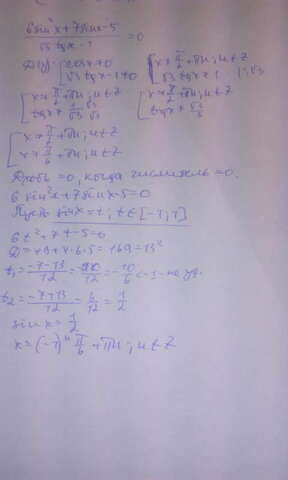 6sin²x+7sinx-5
√3 tgx-1 =0
ОДЗ: [cosx≠0 [x≠π/2+πn; n∈Z
[√3 tgx-1≠0 [√3 tgx≠1 |:√3
[x≠π/2+πn; n∈Z [x≠π/2+πn; n∈Z
[tgx≠1/√3 √3/√3 [tgx≠√3/3
[x≠π/2+πn; n∈Z
[x≠π/6+πn; n∈Z
Дробь =0, когда числитель =0.
6 sin²x+7sinx-5=0
Пусть sinx=t; t∈[-1;1]
6t²+7t-5=0
D=49+4·6·5=169=13²
t₁=-7-13/12=-20/12=-10/6<-1-не уд.
t₂=-7+13/12=6/12=1/2
sinx=1/2
x=(-1)ⁿ π/6+πn; n∈Z